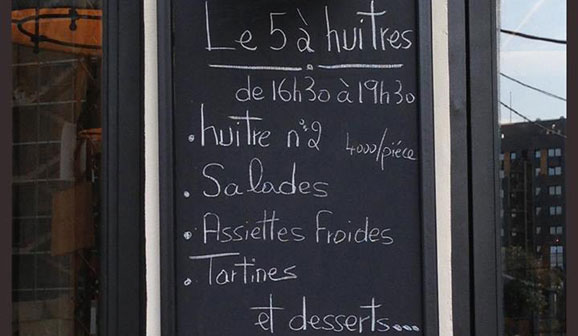 Le 5 à huitres
de 16h30 à 19h30
. huitre n°2 4000/piéce
. Salades
. Assiettes Froides
. Tartines
et desserts...